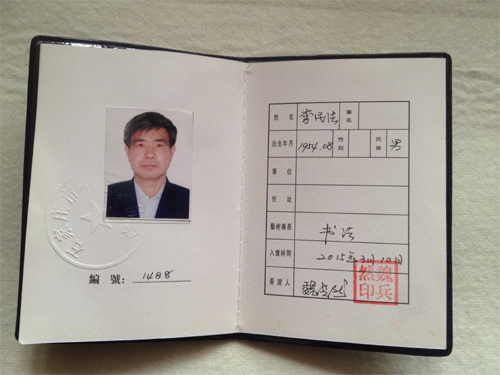 編 號: 1488
姓 名 李民法 筆名
出生年月 1954.08 性别 民族 男
單 位
住 址
藝術專長 书法
入會時間 2015年3月10日
簽證人 魏
魏兵然印